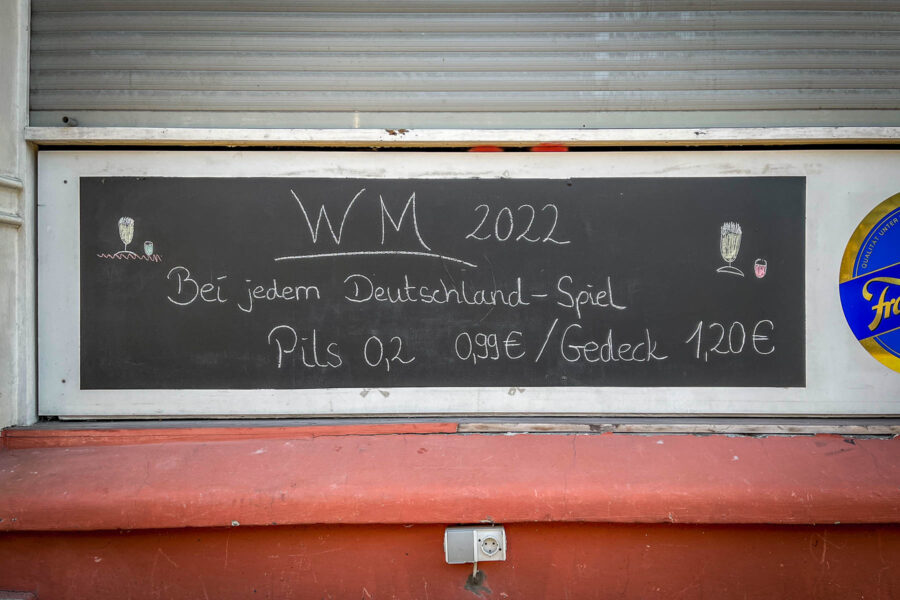 WM 2022
Bei jedem Deutschland-Spiel
Pils 0,2 0,99€/Gedeck 1,20€
QUALITÄT UNTER